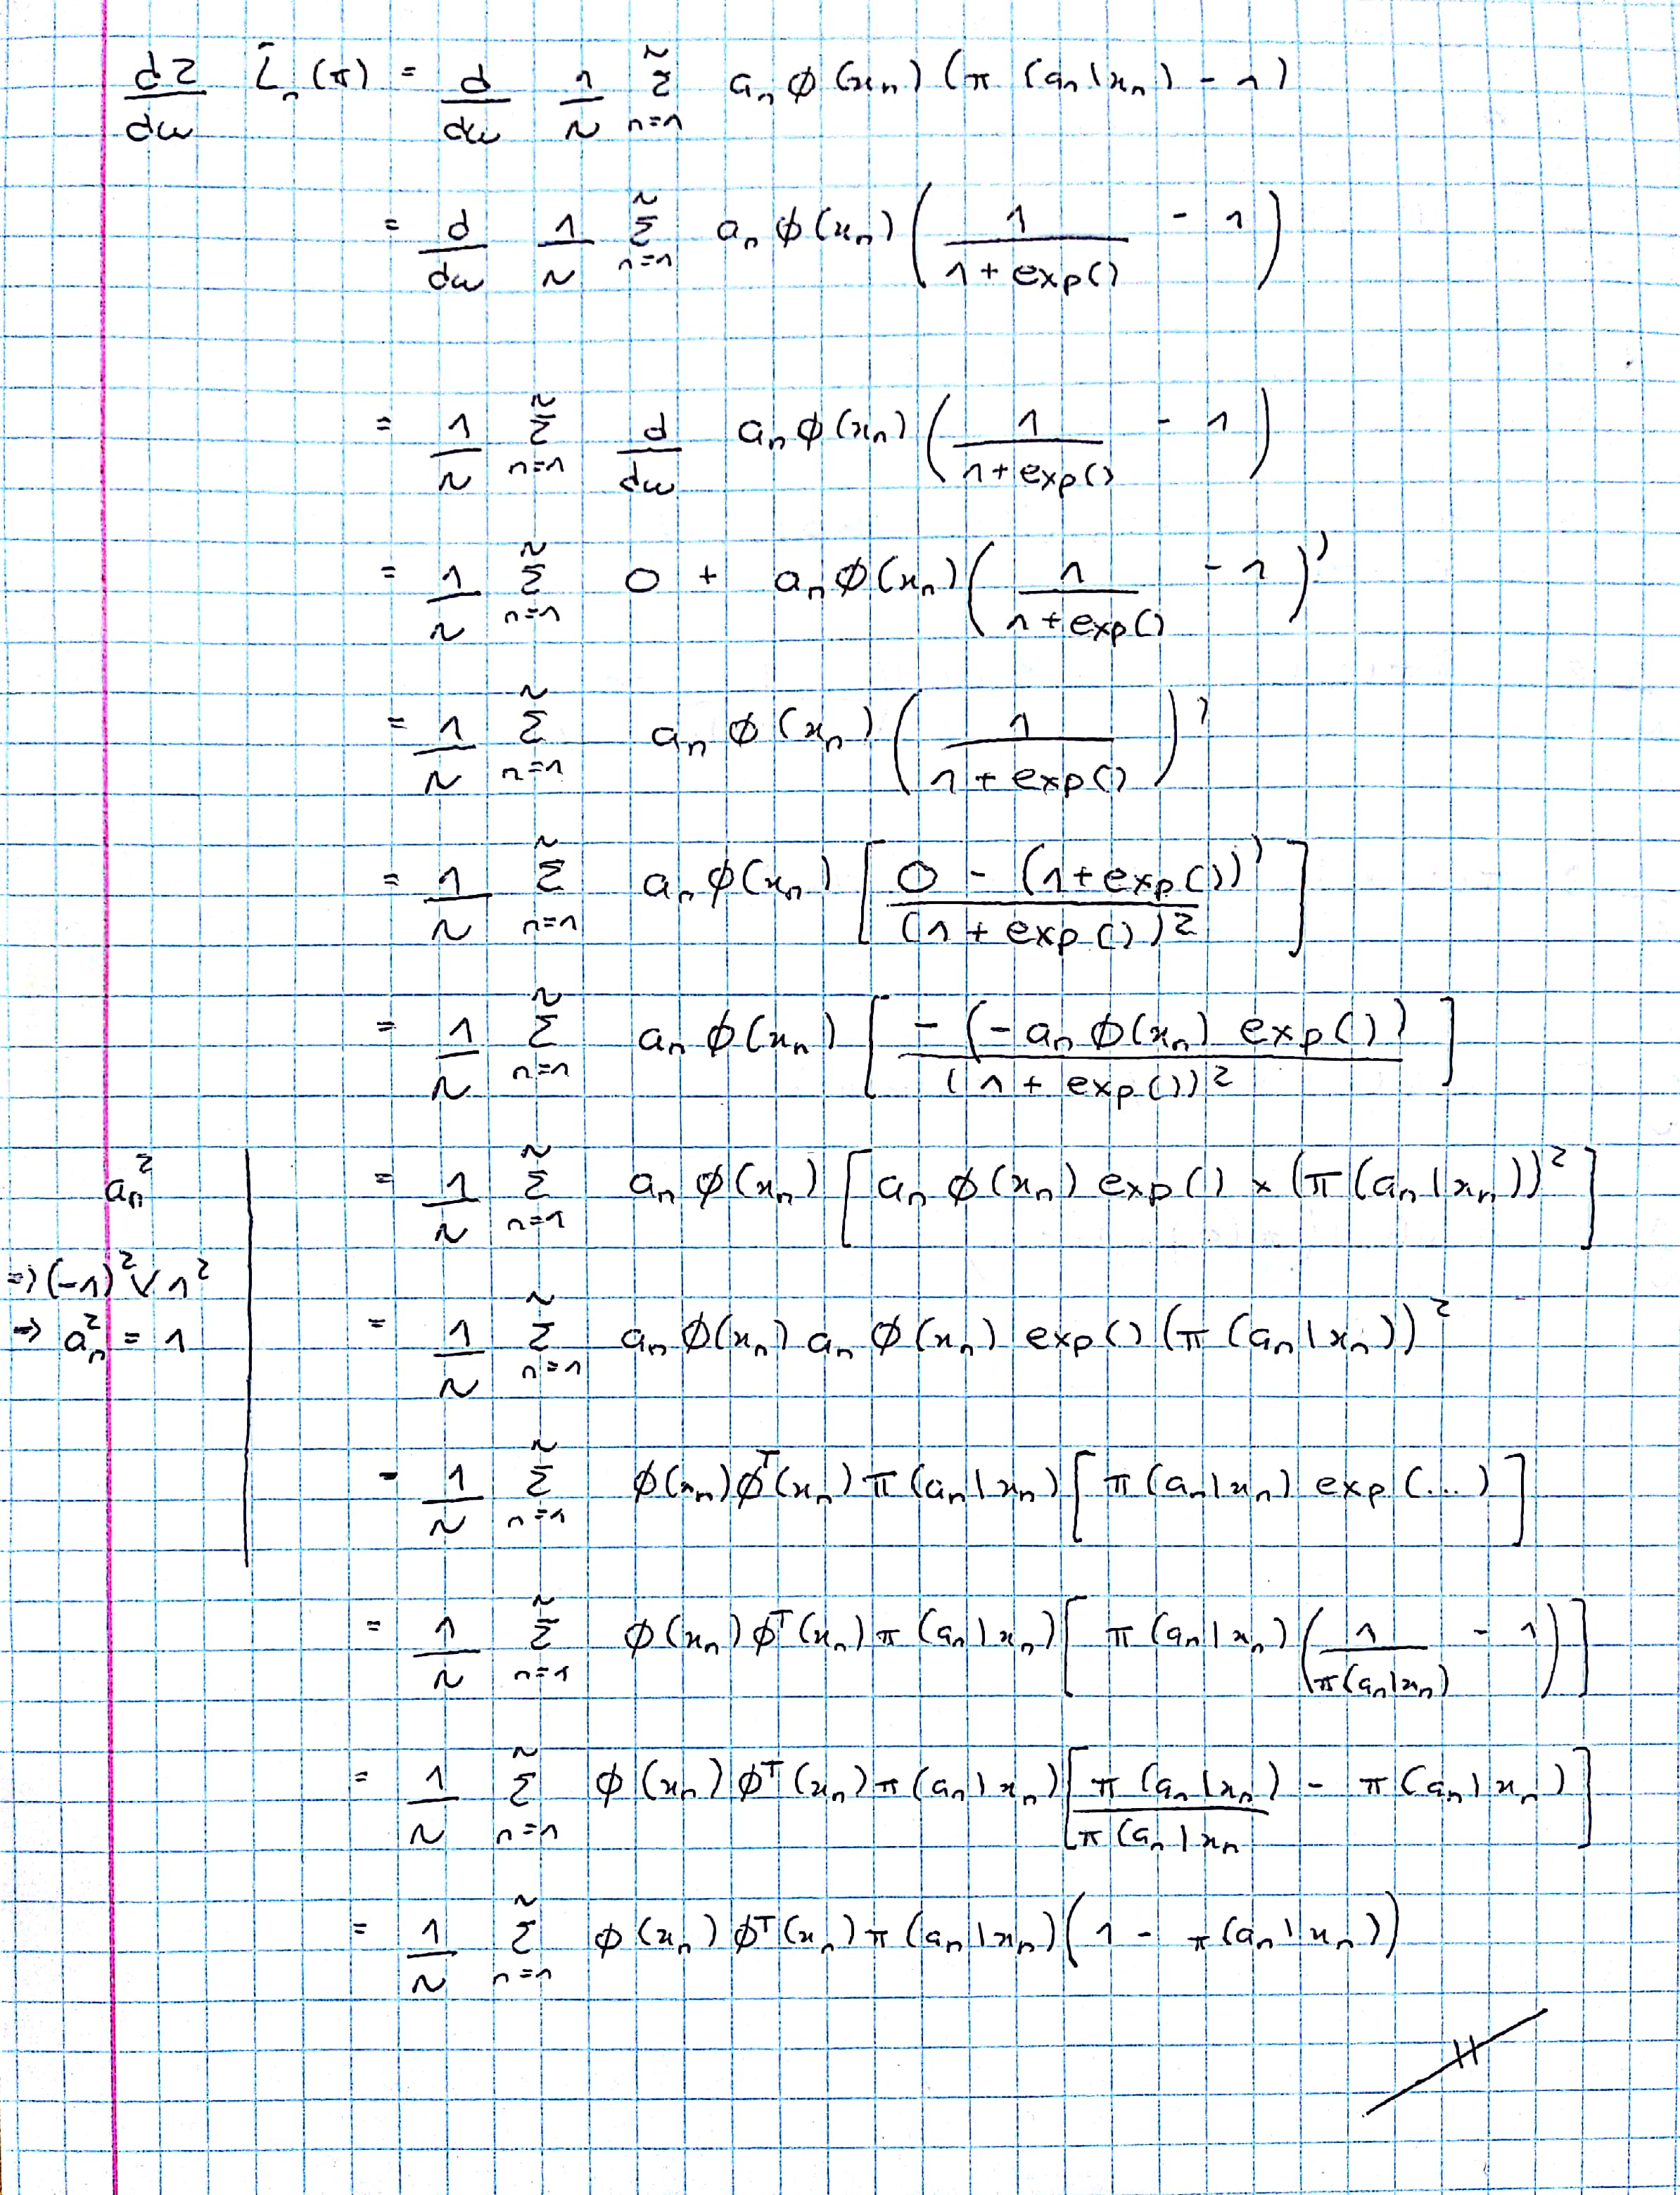 d2/dw L̄ₙ(π) = d/dw 1/N Σₙ₌₁ᴺ aₙ ϕ(xₙ) (π (aₙ|xₙ) - 1)
= d/dw 1/N Σₙ₌₁ᴺ aₙ ϕ(xₙ) (1/(1 + exp()) - 1)
= 1/N Σₙ₌₁ᴺ d/dw aₙ ϕ(xₙ) (1/(1 + exp()) - 1)
= 1/N Σₙ₌₁ᴺ 0 + aₙ ϕ(xₙ) (1/(1 + exp()) - 1)'
= 1/N Σₙ₌₁ᴺ aₙ ϕ(xₙ) (1/(1 + exp()))'
= 1/N Σₙ₌₁ᴺ aₙ ϕ(xₙ) [(0 - (1 + exp())')/(1 + exp())²]
= 1/N Σₙ₌₁ᴺ aₙ ϕ(xₙ) [-(-aₙ ϕ(xₙ) exp())/(1 + exp())²]
aₙ²
⇒ (-1)² ∨ 1²
⇒ aₙ² = 1
= 1/N Σₙ₌₁ᴺ aₙ ϕ(xₙ) [aₙ ϕ(xₙ) exp() × (π(aₙ|xₙ))²]
= 1/N Σₙ₌₁ᴺ aₙ ϕ(xₙ) aₙ ϕ(xₙ) exp() (π(aₙ|xₙ))²
= 1/N Σₙ₌₁ᴺ ϕ(xₙ) ϕᵀ(xₙ) π(aₙ|xₙ) [π(aₙ|xₙ) exp(...)]
= 1/N Σₙ₌₁ᴺ ϕ(xₙ) ϕᵀ(xₙ) π(aₙ|xₙ) [π(aₙ|xₙ) (1/π(aₙ|xₙ) - 1)]
= 1/N Σₙ₌₁ᴺ ϕ(xₙ) ϕᵀ(xₙ) π(aₙ|xₙ) [π(aₙ|xₙ)/π(aₙ|xₙ - π(aₙ|xₙ)]
= 1/N Σₙ₌₁ᴺ ϕ(xₙ) ϕᵀ(xₙ) π(aₙ|xₙ) (1 - π(aₙ|xₙ))